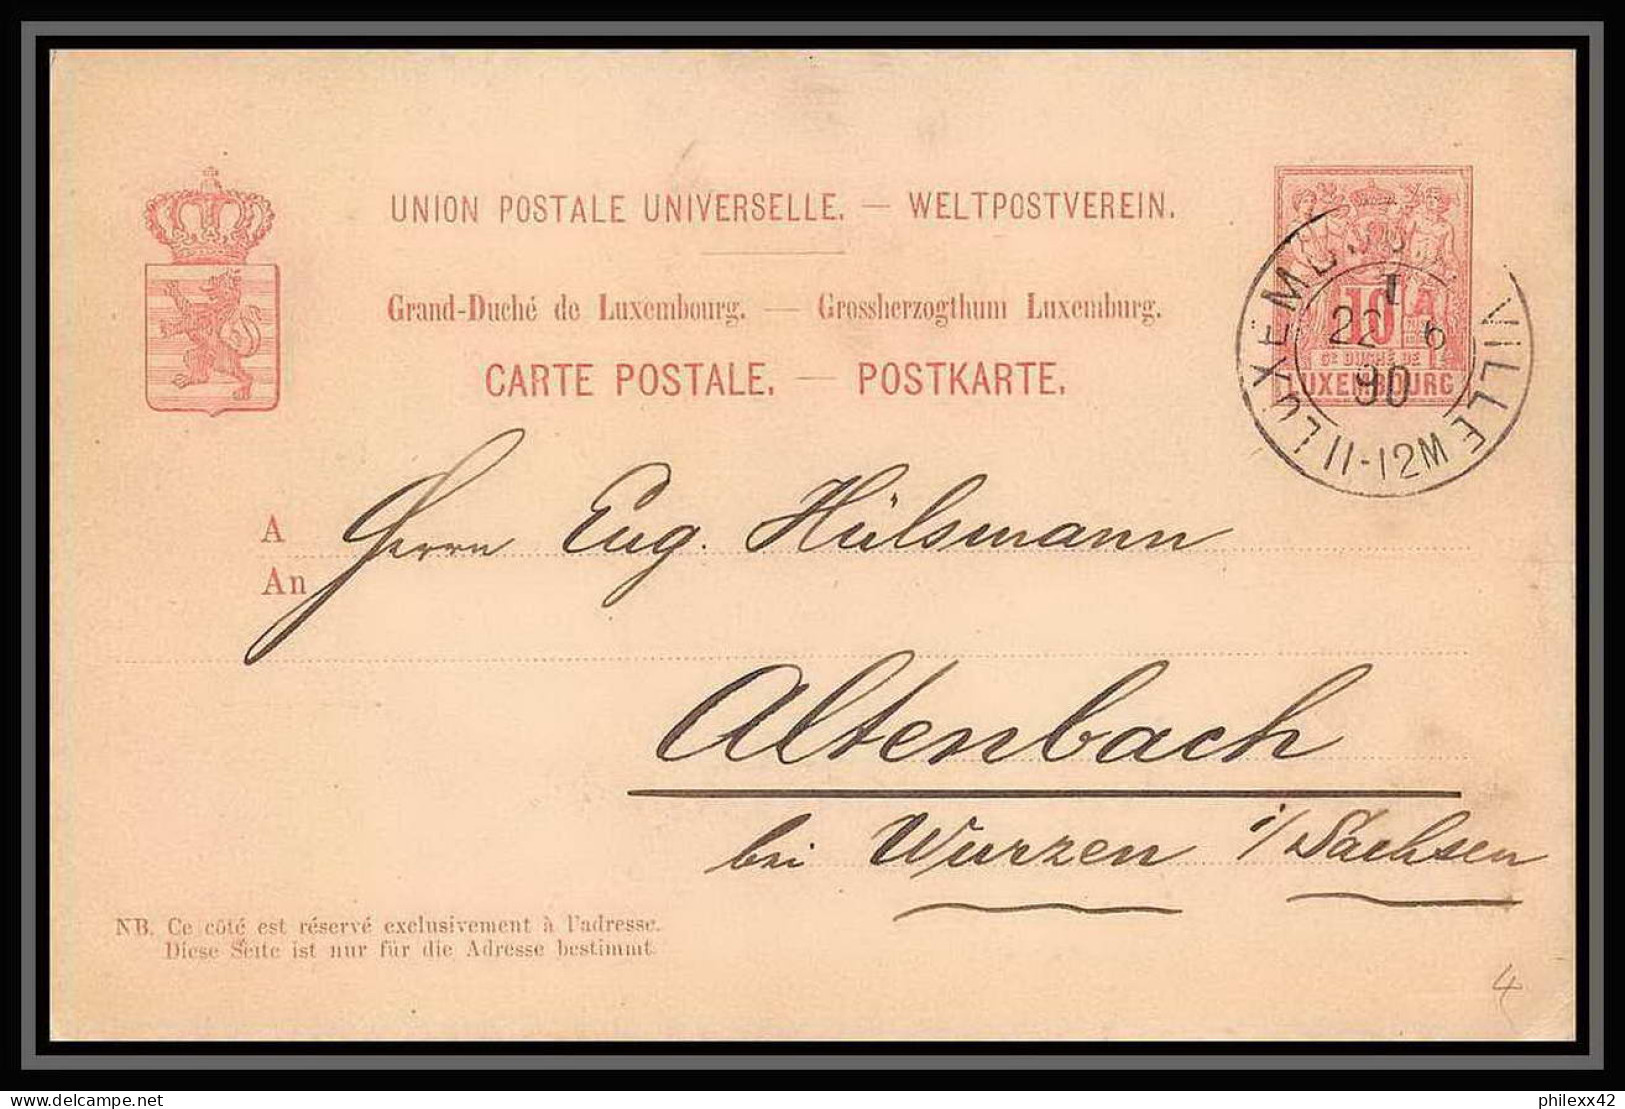 UNION POSTALE UNIVERSELLE. — WELTPOSTVEREIN.
Grand-Duché de Luxembourg. — Grossherzogthum Luxemburg.
CARTE POSTALE. — POSTKARTE.
10
Gᴰ DUCHÉ DE
LUXEMBOURG
LUXEMBOURG VILLE
1
22 6
90
11-12M
A Herrn Eug. Hülsmann
An
Altenbach
bei Wurzen i/Sachsen
NB. Ce côté est réservé exclusivement à l'adresse.
Diese Seite ist nur für die Adresse bestimmt.
4
www.delcampe.net
philexx42